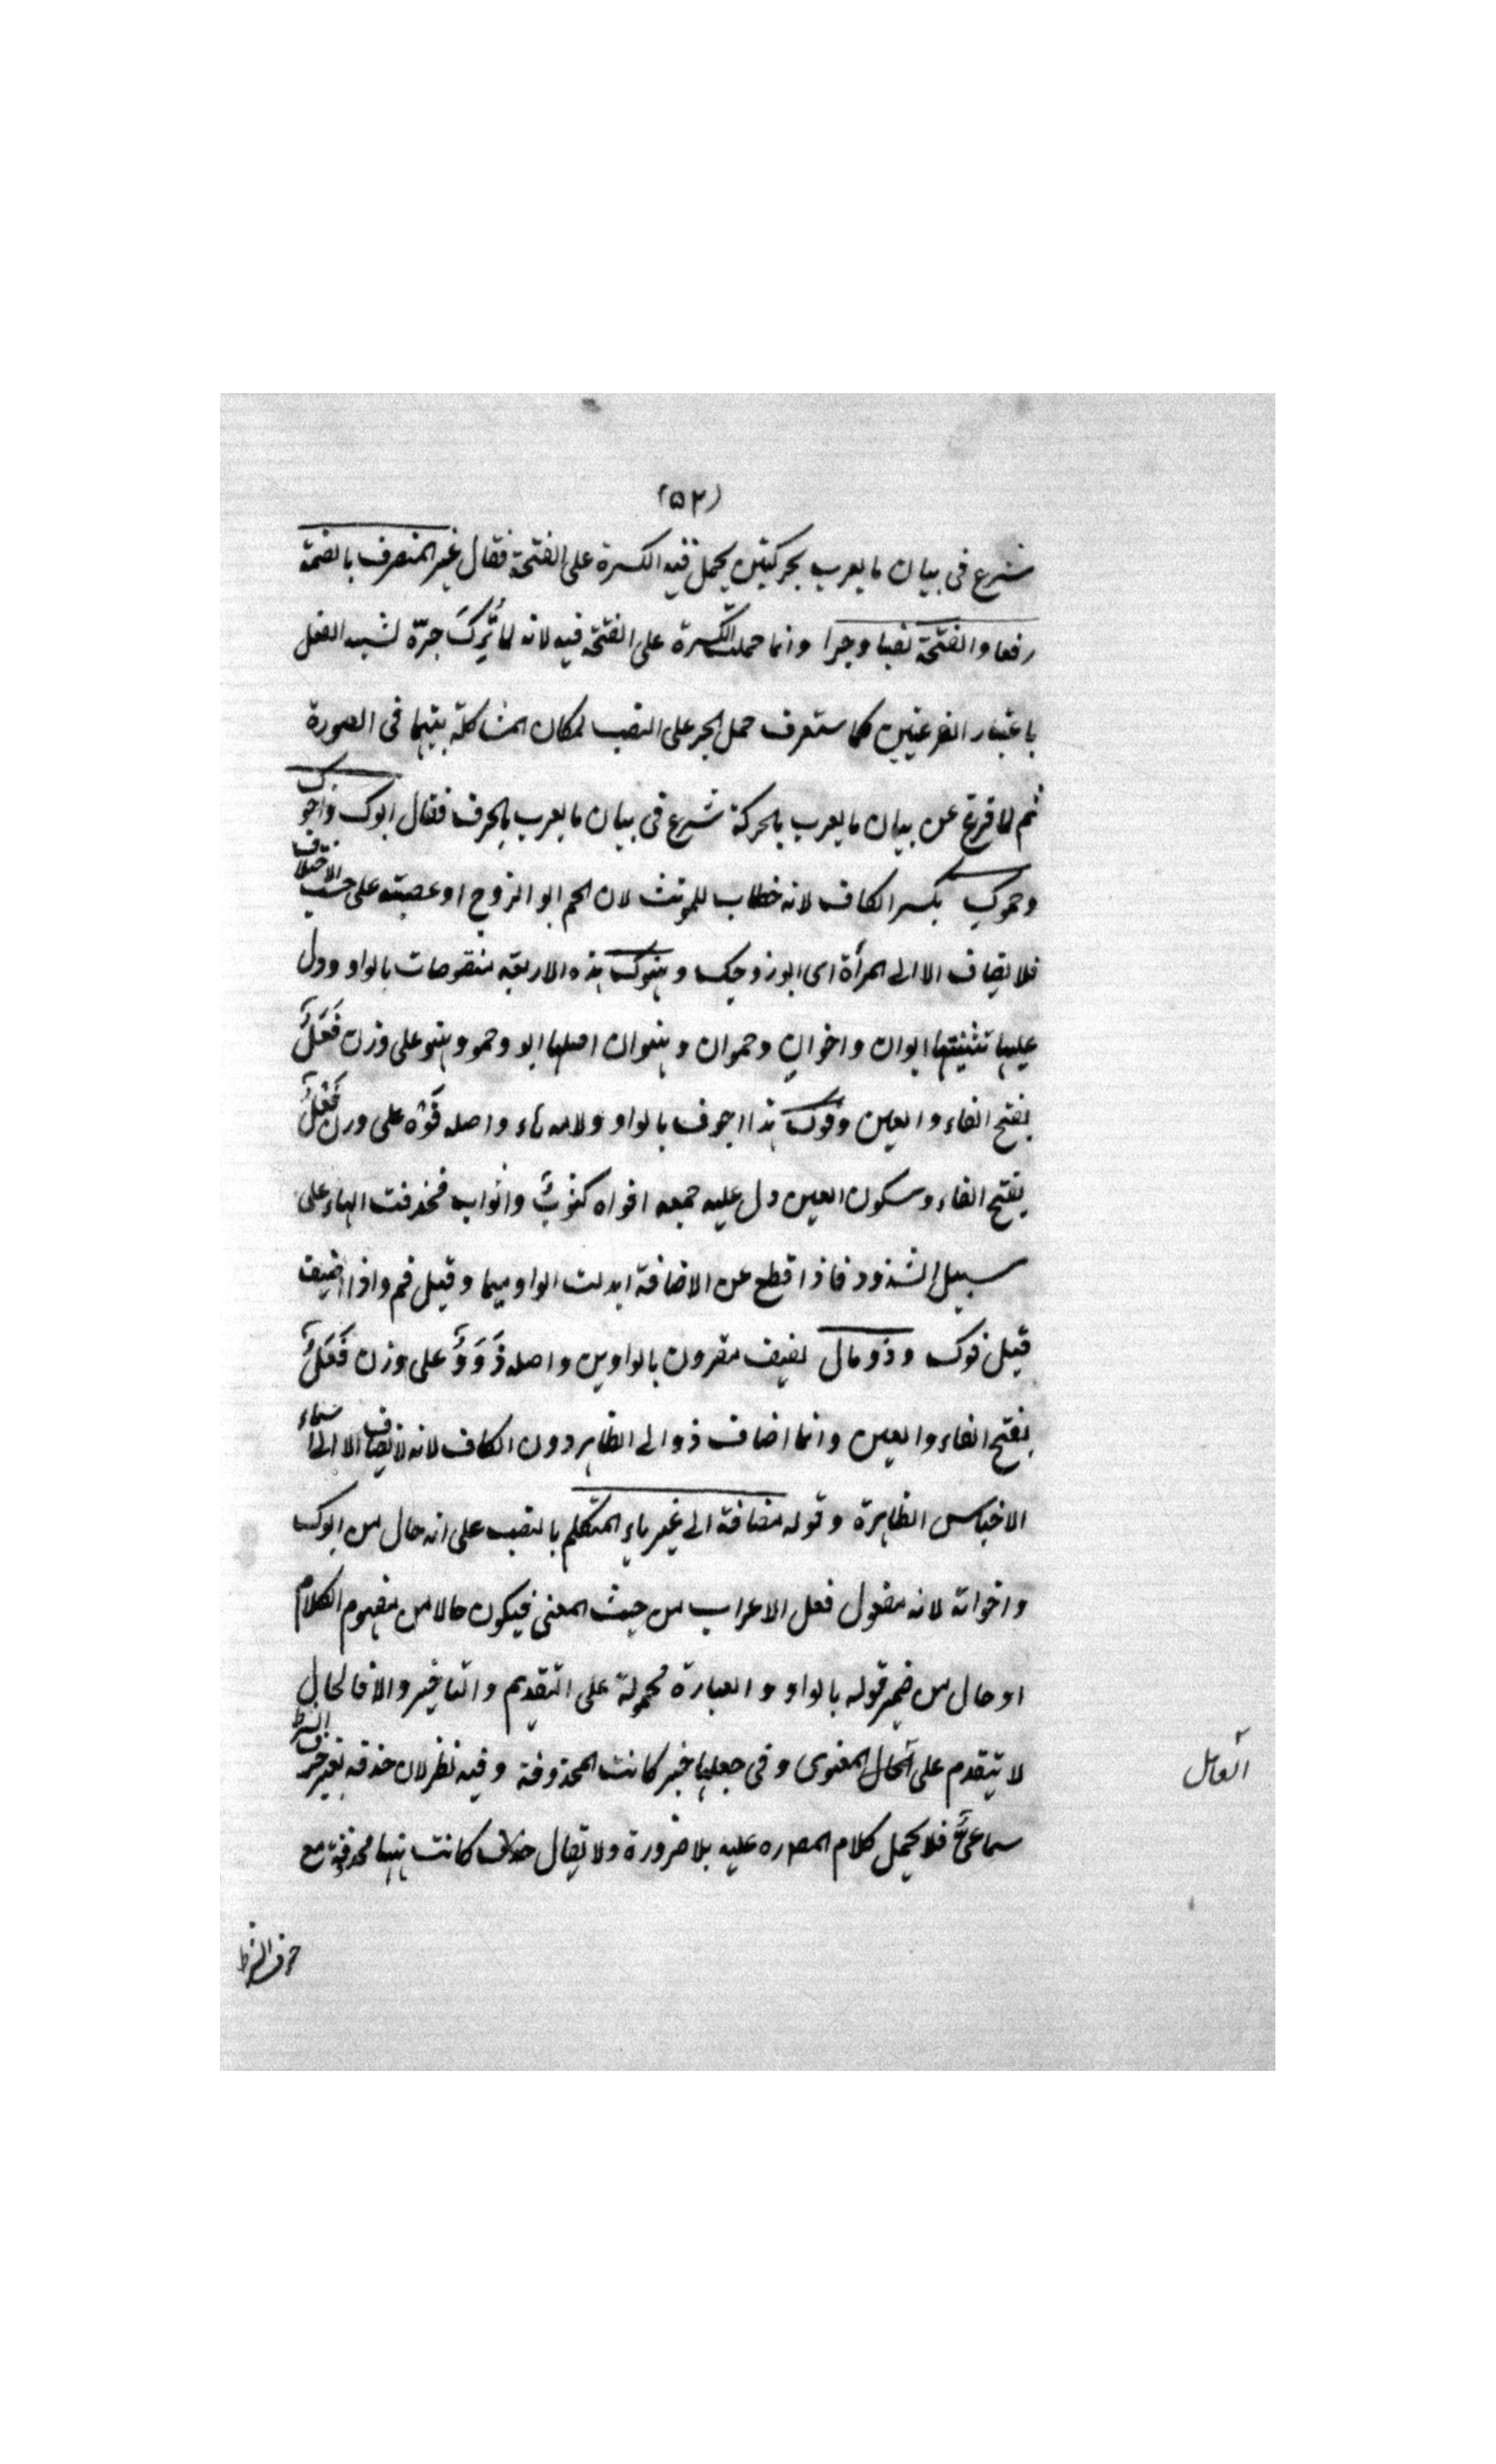 (۵۲)
شرع فى بيان ما يعرب بحركتين يحمل فيه الكسرة على الفتحة فقال غير المنصرف بالضمة
رفعا والفتحة نصبا وجرا وانما حملت الكسرة على الفتحة فيه لانه لما تُرِكَ جرّه لشبه الفعل
باعتبار الفرعيتين كما ستعرف حمل الجر على النصب لمكان المشاكلة بينهما فى الصورة
ثم لما فرغ عن بيان ما يعرب بالحركة شرع فى بيان ما يعرب بالحرف فقال ابوك واخوك
وحموكِ بكسر الكاف لانه خطاب للمونث لان الحم ابو الزوج او عصبته على حسب الاختلاف
فلا يضاف الا الى المرأة اى ابو زوجك وهنوك هذه الاربعة منقوصات بالواو ودل
عليها تثنيتها ابوان واخوان وحموان وهنوان اصلها ابو وحمو وهنو على وزن فَعَلٌ
بفتح الفاء والعين وفوك هذا اجوف بالواو ولامه هاء واصله فَوْه على وزن فَعْلٌ
بفتح الفاء وسكون العين دل عليه جمعه افواه كثوبٌ واثواب فحذفت الهاء على
سبيل الشذوذ فاذا قطع عن الاضافة ابدلت الواو ميما وقيل فم واذا اضيف
قيل فوك وذو مال لفيف مقرون بالواوين واصله ذَوَوٌ على وزن فَعَلٌ
بفتح الفاء والعين وانما اضاف ذو الى الظاهر دون الكاف لانه لا يضاف الا الى اسماء
الاجناس الظاهرة وقوله مضافة الى غير ياء المتكلم بالنصب على انه حال من ابوك
واخواته لانه مفعول فعل الاعراب من حيث المعنى فيكون حالا من مفهوم الكلام
او حال من ضمير قوله بالواو والعبارة محمولة على التقديم والتاخير والا فالحال
لا يتقدم على الحال المعنوى وفى جعلها خبر كانت المحذوفة وفيه نظر لان حذفه بغير حرف الشرط
سماعىٌّ فلا يحمل كلام المصره عليه بلا ضرورة ولا يقال حذف كانت ههنا محذوفة مع
العامل
حرف الشرط